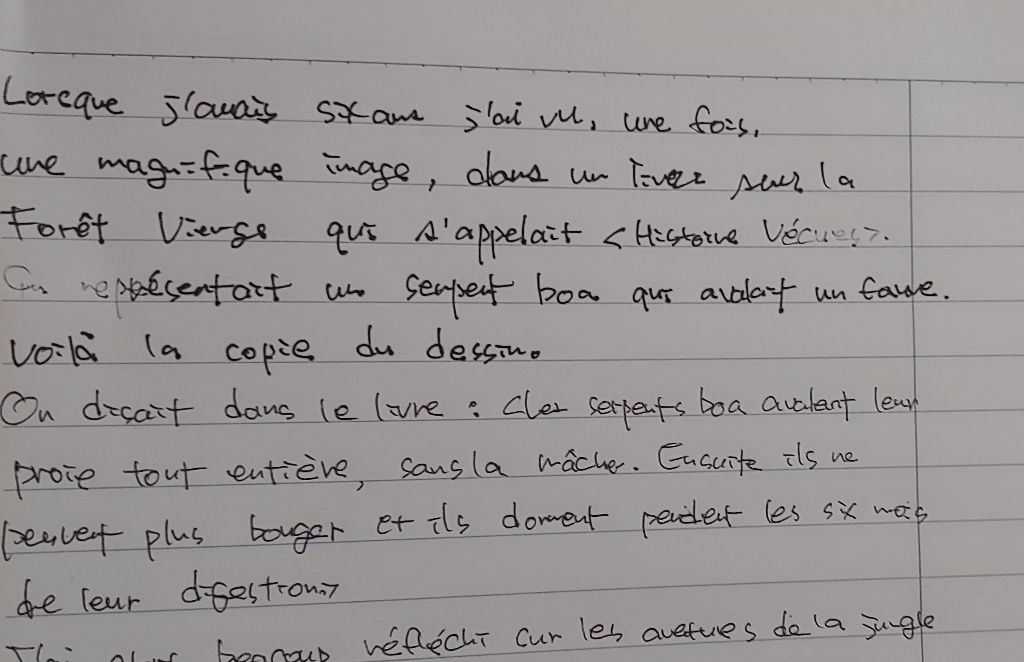 Lorsque j'avais six ans j'ai vu, une fois,
une magnifique image, dans un livre sur la
Forêt Vierge qui s'appelait <Histoire Vécues>.
Ça représentait un serpent boa qui avalait un fauve.
Voilà la copie du dessin.
On disait dans le livre : <Les serpents boa avalent leur
proie tout entière, sans la mâcher. Ensuite ils ne
peuvent plus bouger et ils dorment pendent les six mois
de leur digestion>
J'ai alors beaucoup réfléchi sur les aventures de la jungle